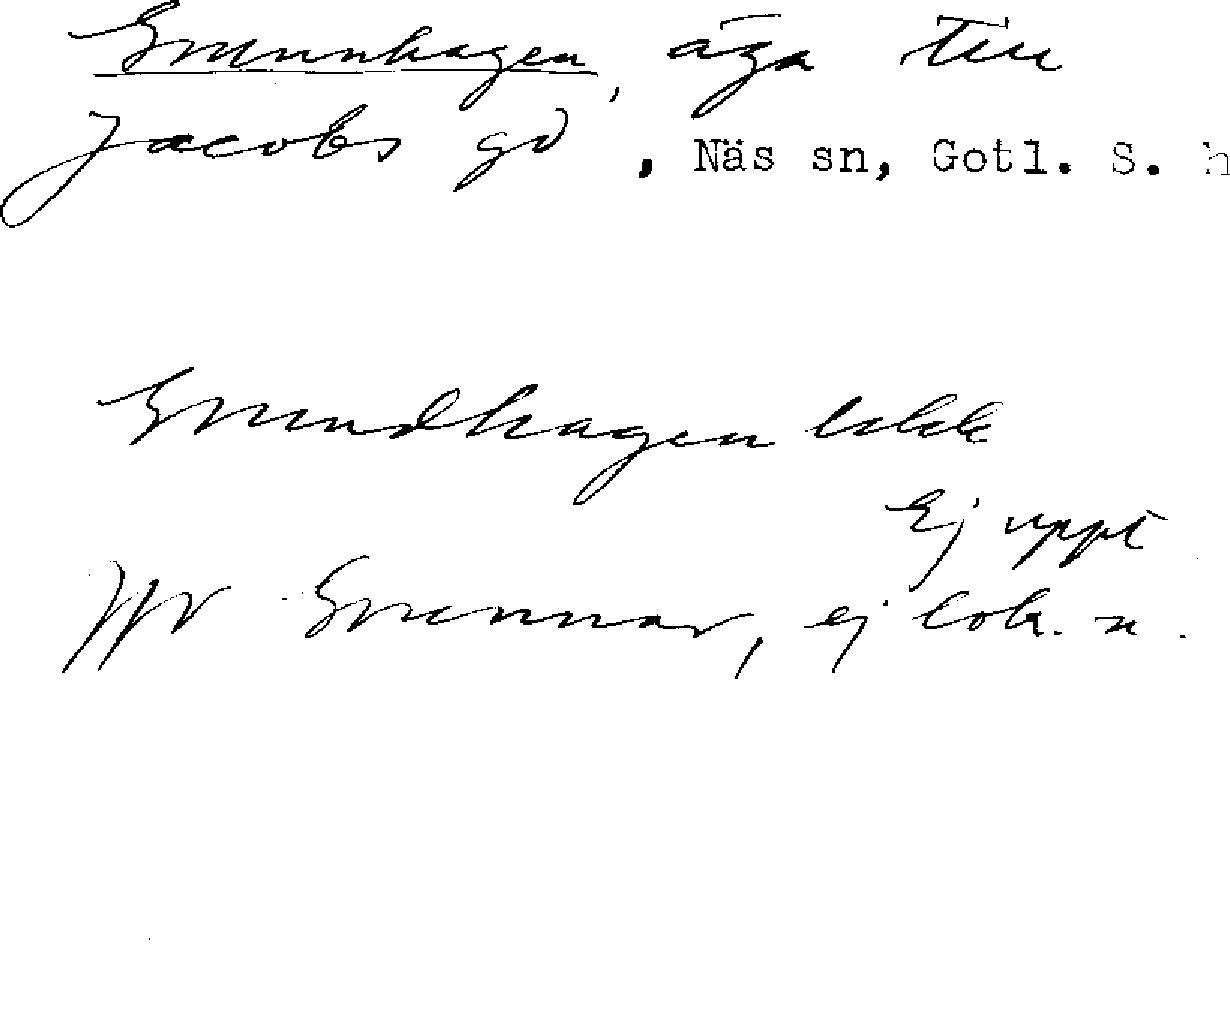 Grunnhagen, äga till
Jacobs gd, Näs sn, Gotl. S. h
Grundhagen
Ej uppt
Jfr Grunnar, ej lok. n.